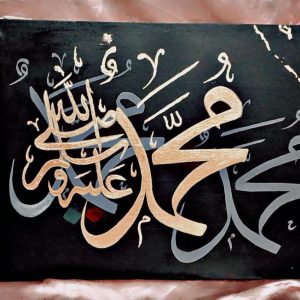 محمد صلى الله عليه وسلم
محمد